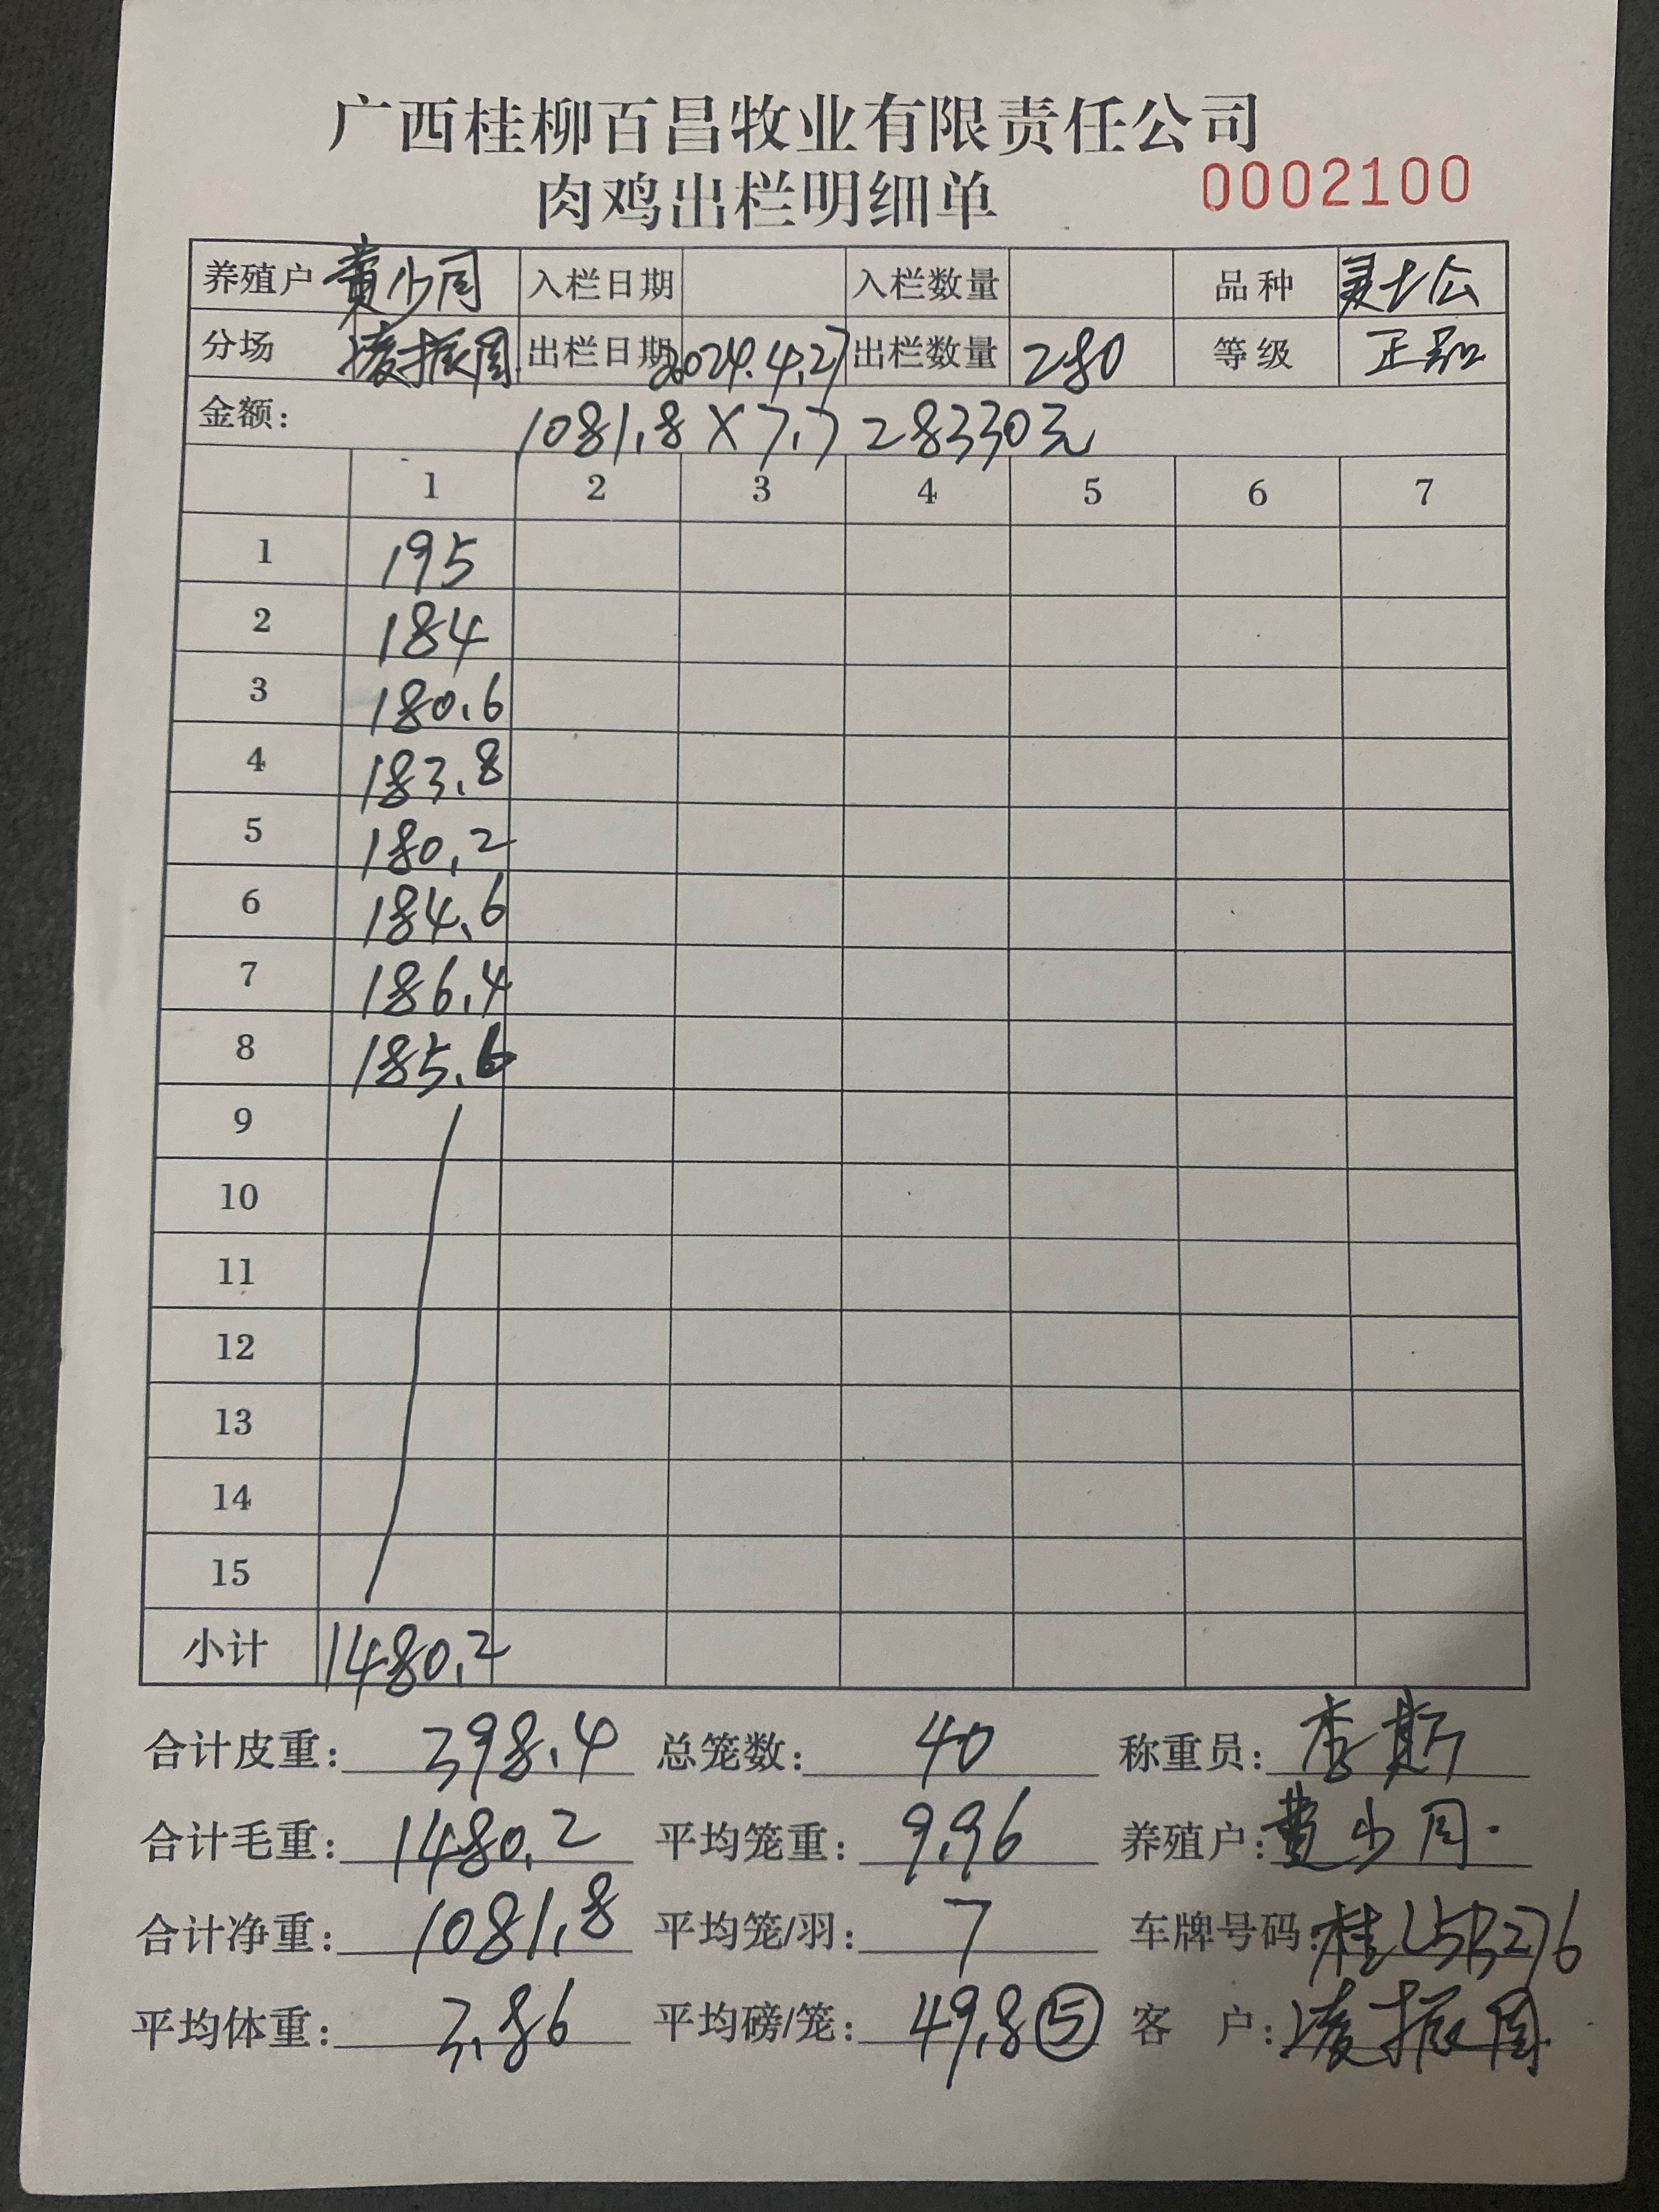 广西桂柳百昌牧业有限责任公司
肉鸡出栏明细单 0002100
养殖户 黄少周 入栏日期 入栏数量 品种 灵土公
分场 凌振周 出栏日期 2024.4.27 出栏数量 280 等级 正品
金额: 1081.8×7.7 28330元
1 2 3 4 5 6 7
1 195
2 184
3 180.6
4 183.8
5 180.2
6 184.6
7 186.4
8 185.6
9
10
11
12
13
14
15
小计 1480.2
合计皮重: 398.4 总笼数: 40 称重员: 李斯
合计毛重: 1480.2 平均笼重: 9.96 养殖户: 黄少周.
合计净重: 1081.8 平均笼/羽: 7 车牌号码: 桂L5R276
平均体重: 3.86 平均磅/笼: 49.8⑤ 客户: 凌振周